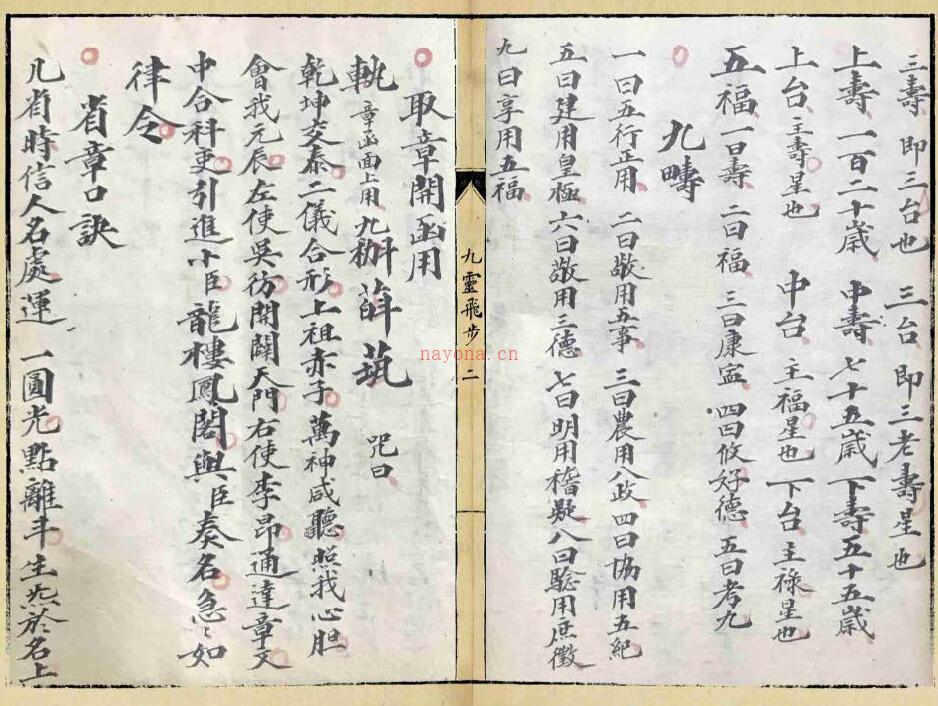 三壽 即三台也 三台即三老壽星也
上壽 一百二十歲 中壽 七十五歲 下壽五十五歲
上台 主壽星也 中台 主福星也 下台 主祿星也
五福 一曰壽 二曰福 三曰康寍 四曰攸好德 五曰考九
九疇
一曰五行正用 二曰敬用五事 三曰農用八政 四曰協用五紀
五曰建用皇極 六曰敬用三德 七曰明用稽疑 八曰驗用庶徵
九曰享用五福
九靈飛步 二
取章開函用
執 章函面上用 九 咒曰
乾坤交泰二儀合形上祖赤子萬神咸聽照我心胆
會我元辰左使吳彷開闢天門右使李昂通達章文
中合科吏引進小臣龍樓鳳閣與臣奏名急〻如
律令
省章口訣
凡省時信人名處運 一圓光點離斗 生炁於名上
nayona.cn